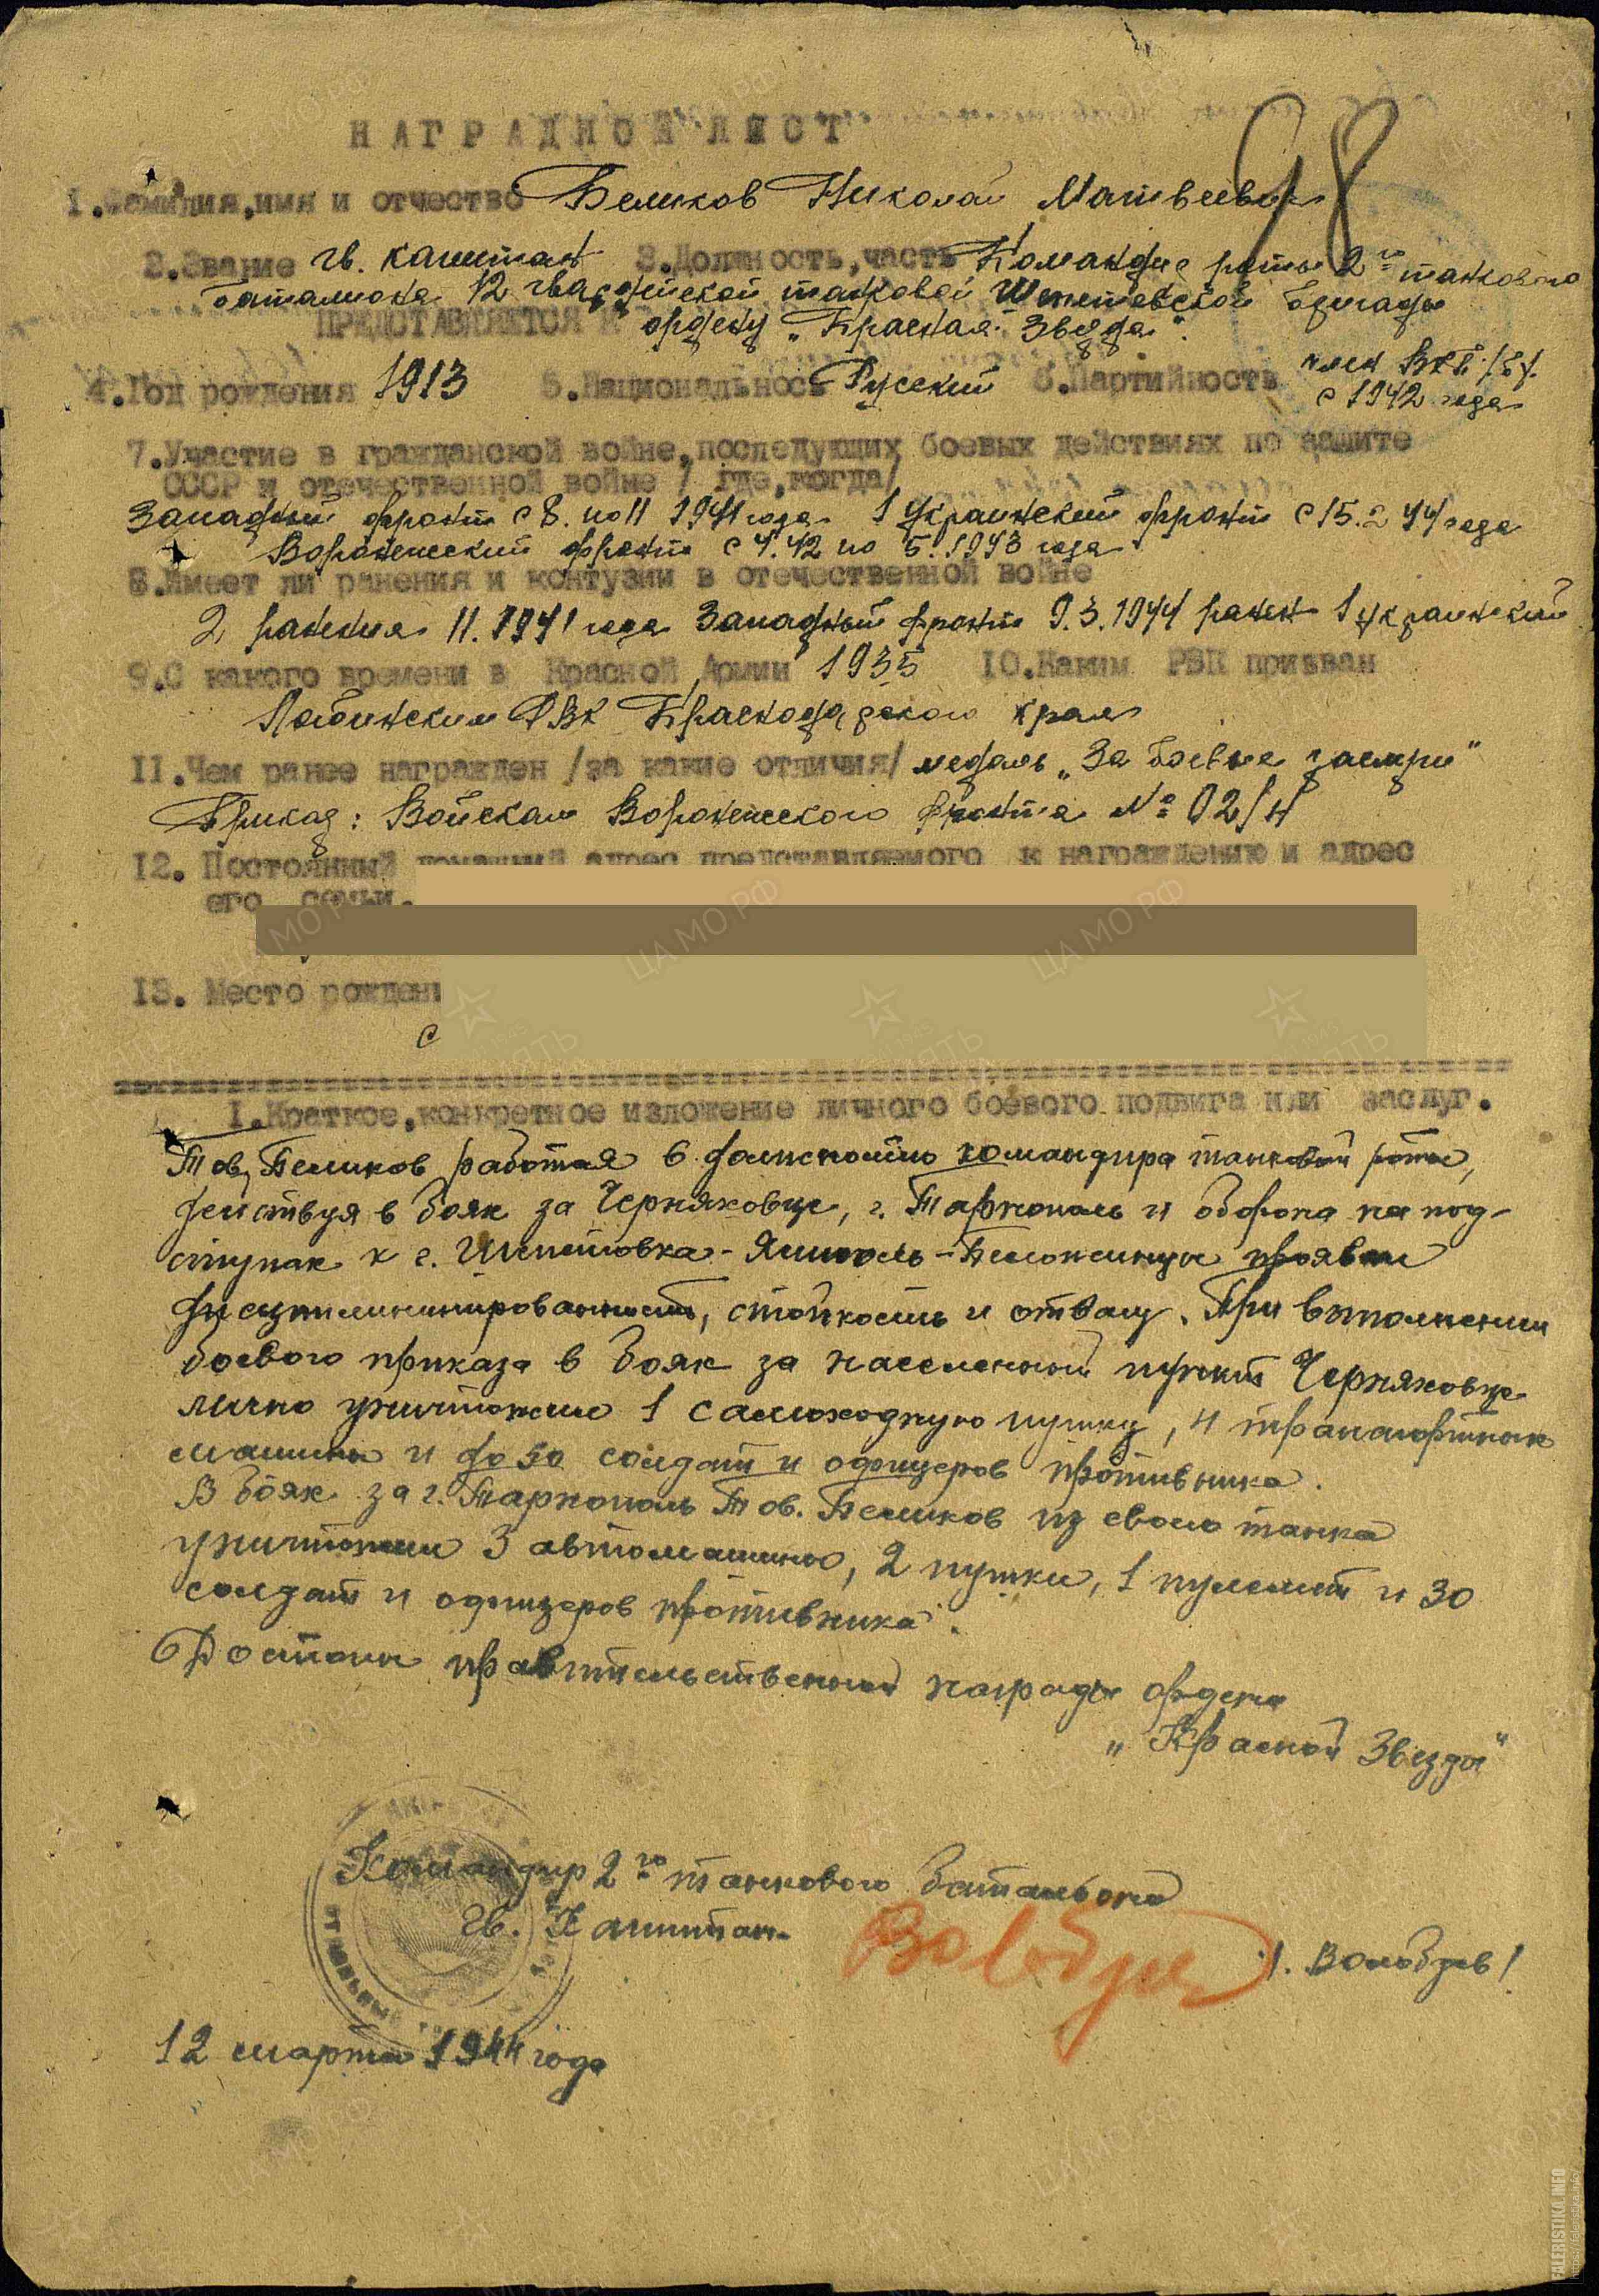 98
НАГРАДНОЙ ЛИСТ
1.Фамилия,имя и отчество Беликов Николай Матвеевич
2.Звание гв. капитан 3.Должность,часть Командир роты 2го танкового
баталиона 12 гвардейской танковой Шепетовской бригады
ПРЕДСТАВЛЯЕТСЯ К ордену „Красная Звезда".
4.Год рождения 1913 5.Национальность Русский 6.Партийность член ВКП/б/.
с 1942 года
7.Участие в гражданской войне,последующих боевых действиях по защите
СССР и отечественной войне / где,когда/
Западный фронт с 8. по 11 1941 года 1 Украинский фронт с 15.2 44 года
Воронежский фронт с 7.42 по 5.1943 года
8.Имеет ли ранения и контузии в отечественной войне
2 ранения 11.1941 года Западный фронт 9.3.1944 ранен 1 украинский
9.С какого времени в Красной Армии 1935 10.Каким РВК призван
Лабинским РВК Краснодарского края
11.Чем ранее награжден /за какие отличия/ медаль „За боевые заслуги"
Приказ: Войскам Воронежского фронта № 02/н
12. Постоянный домашний адрес представляемого к награждению и адрес
его семьи.
13. Место рождени
с
1.Краткое,конкретное изложение личного боевого подвига или заслуг.
Тов. Беликов работая в должности командира танковой роты,
действуя в боях за Черняховце, г. Тарнополь и оборона на под-
ступах к г. Шепетовка - Ямполь - Беложинцы проявил
дисциплинированность, стойкость и отвагу. При выполнении
боевого приказа в боях за населенный пункт Черняховце
лично уничтожил 1 самоходную пушку, 4 транспортных
машины и до 50 солдат и офицеров противника.
В боях за г. Тарнополь Тов. Беликов из своего танка
уничтожил 3 автомашины, 2 пушки, 1 пулемет и 30
солдат и офицеров противника.
Достоин правительственной награды ордена
„Красной Звезды"
Командир 2го танкового батальона
гв. Капитан
12 марта 1944 года
ЦА МО РФ
FALERISTIKA.INFO